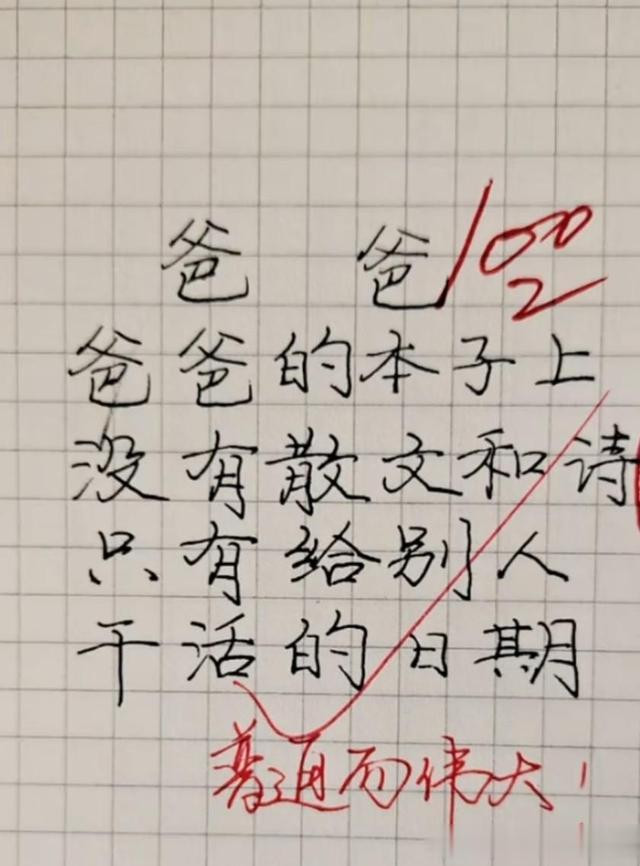 爸爸 100
2
爸爸的本子上
没有散文和诗
只有给别人
干活的日期
普通而伟大!